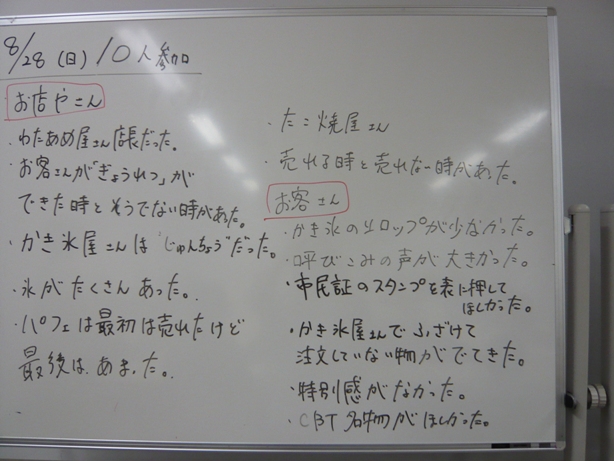 8/28(日) 10人参加
お店やさん
・わたあめ屋さん店長だった。
・お客さんが「ぎょうれつ」が
できた時とそうでない時があった。
・かき氷屋さんは"じゅんちょう"だった。
・氷がたくさんあった。
・パフェは最初は売れたけど
最後はあまった。
・たこ焼屋さん
・売れる時と売れない時があった。
お客さん
・かき氷のシロップが少なかった。
・呼びこみの声が大きかった。
・市民証のスタンプを表に押して
ほしかった。
・かき氷屋さんでふざけて
注文していない物がでてきた。
・特別感がなかった。
・CBT名物がほしかった。